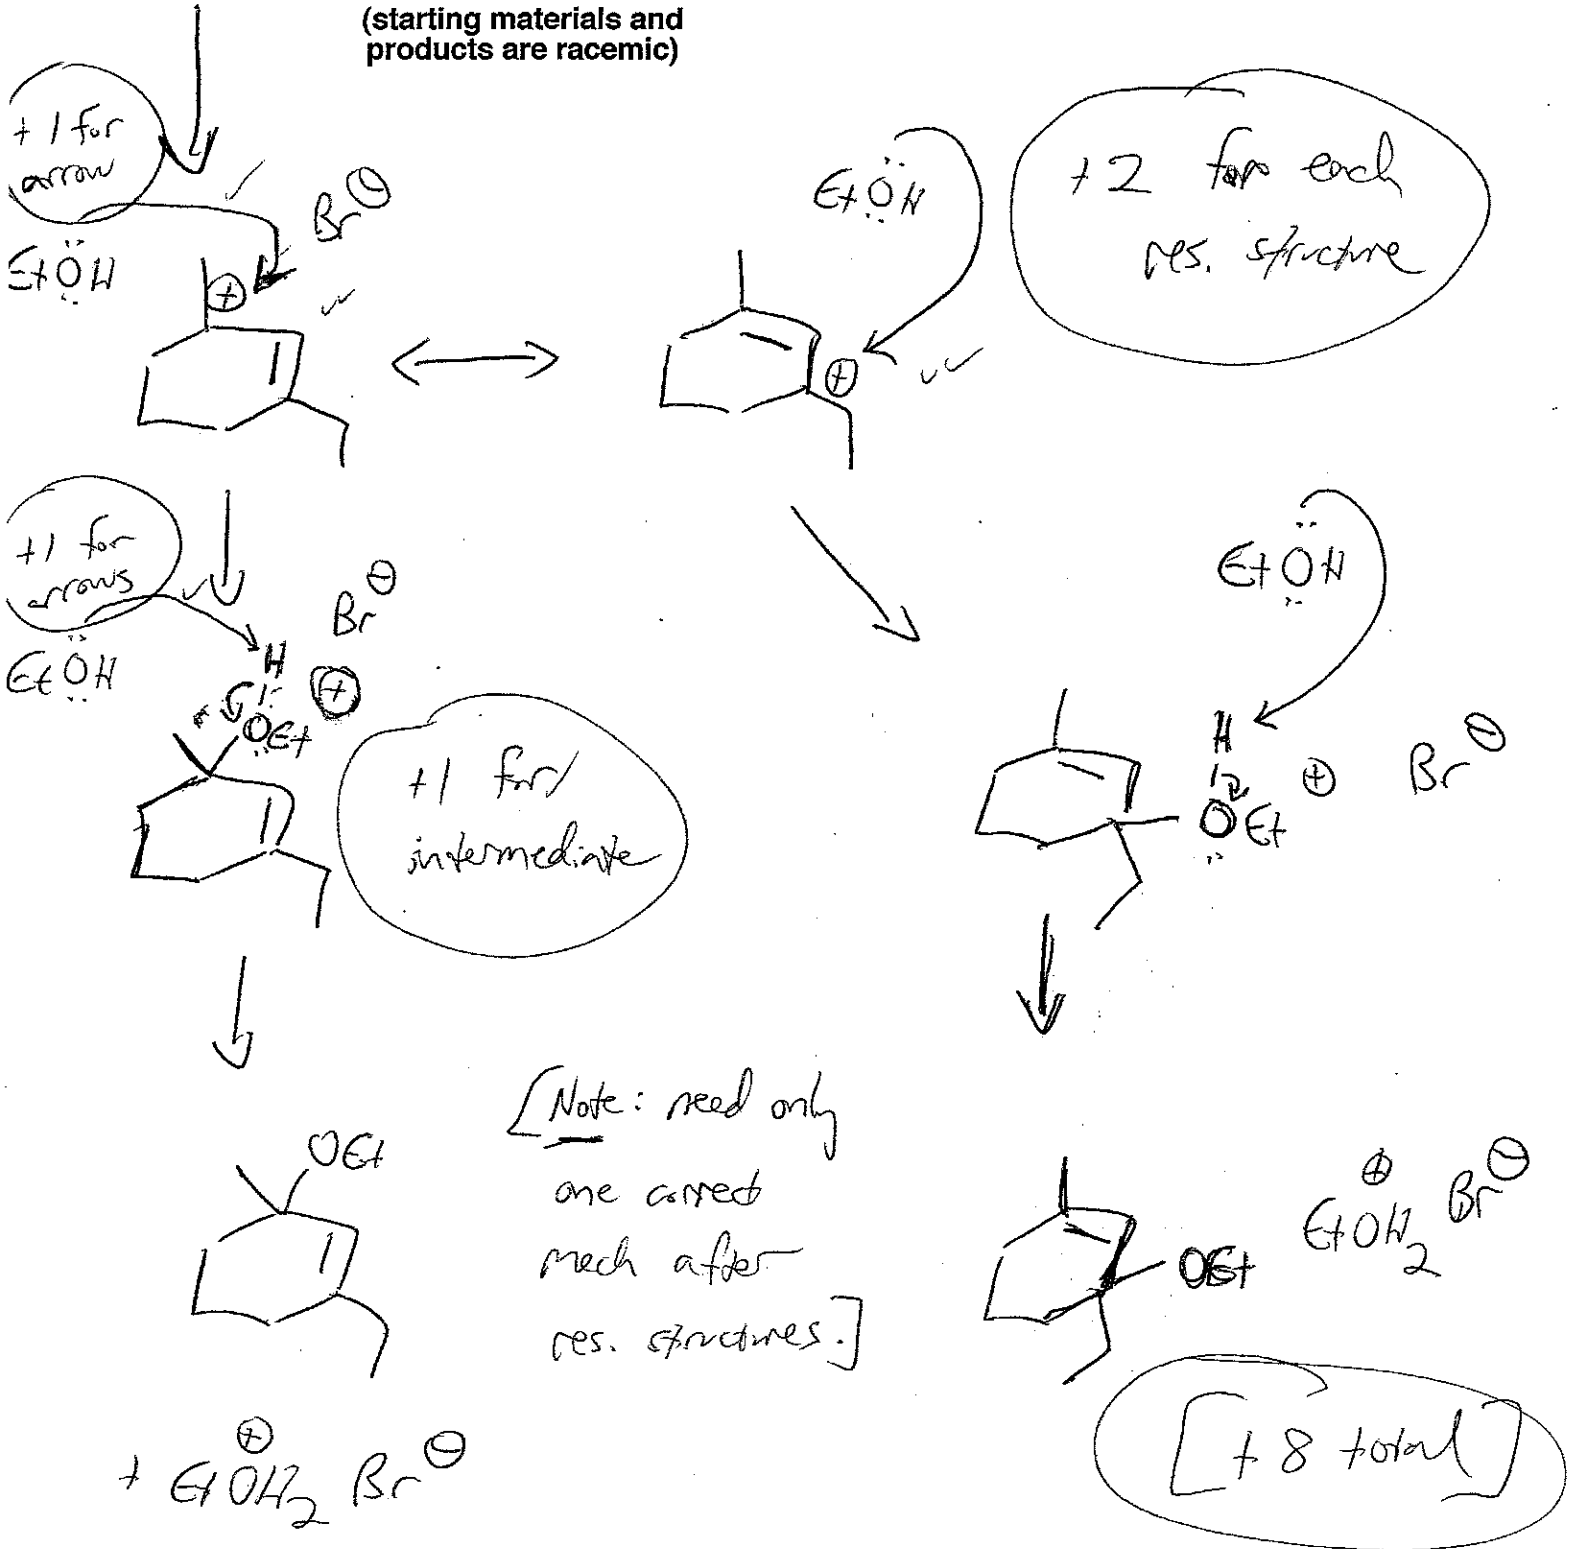 (starting materials and
products are racemic)
+1 for
arrow
Br⊖
EtÖH
⊕
EtÖH
+2 for each
res. structure
⊕
+1 for
arrows
EtÖH
Br⊖
H
⊕
OEt
+1 for
intermediate
EtÖH
H
⊕
Br⊖
OEt
OEt
[Note: need only
one correct
mech after
res. structures.]
+ EtOH₂⊕ Br⊖
OEt
EtOH₂⊕ Br⊖
[+8 total]